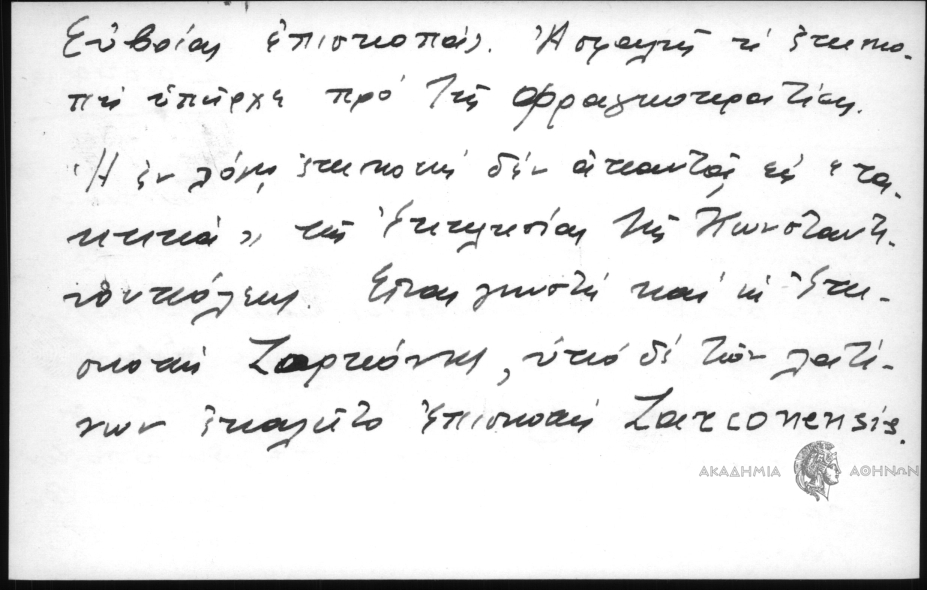 Εὐβοίας ἐπισκοπάς. Ἀσφαλῶς ἡ ἐπισκο-
πὴ ὑπῆρχε πρὸ τῆς Φραγκοκρατίας.
Ἡ ἐν λόγῳ ἐπισκοπὴ δὲν ἀπαντᾷ εἰς «τα-
κτικὰ» τῆς Ἐκκλησίας τῆς Κωνσταντι-
νουπόλεως. Εἶναι γνωστὴ καὶ ἡ Ἐπι-
σκοπὴ Ζαρκόνης, ὑπὸ δὲ τῶν λατί-
νων ἐκαλεῖτο Ἐπισκοπὴ Zarconensis.
ΑΚΑΔΗΜΙΑ ΑΘΗΝΩΝ